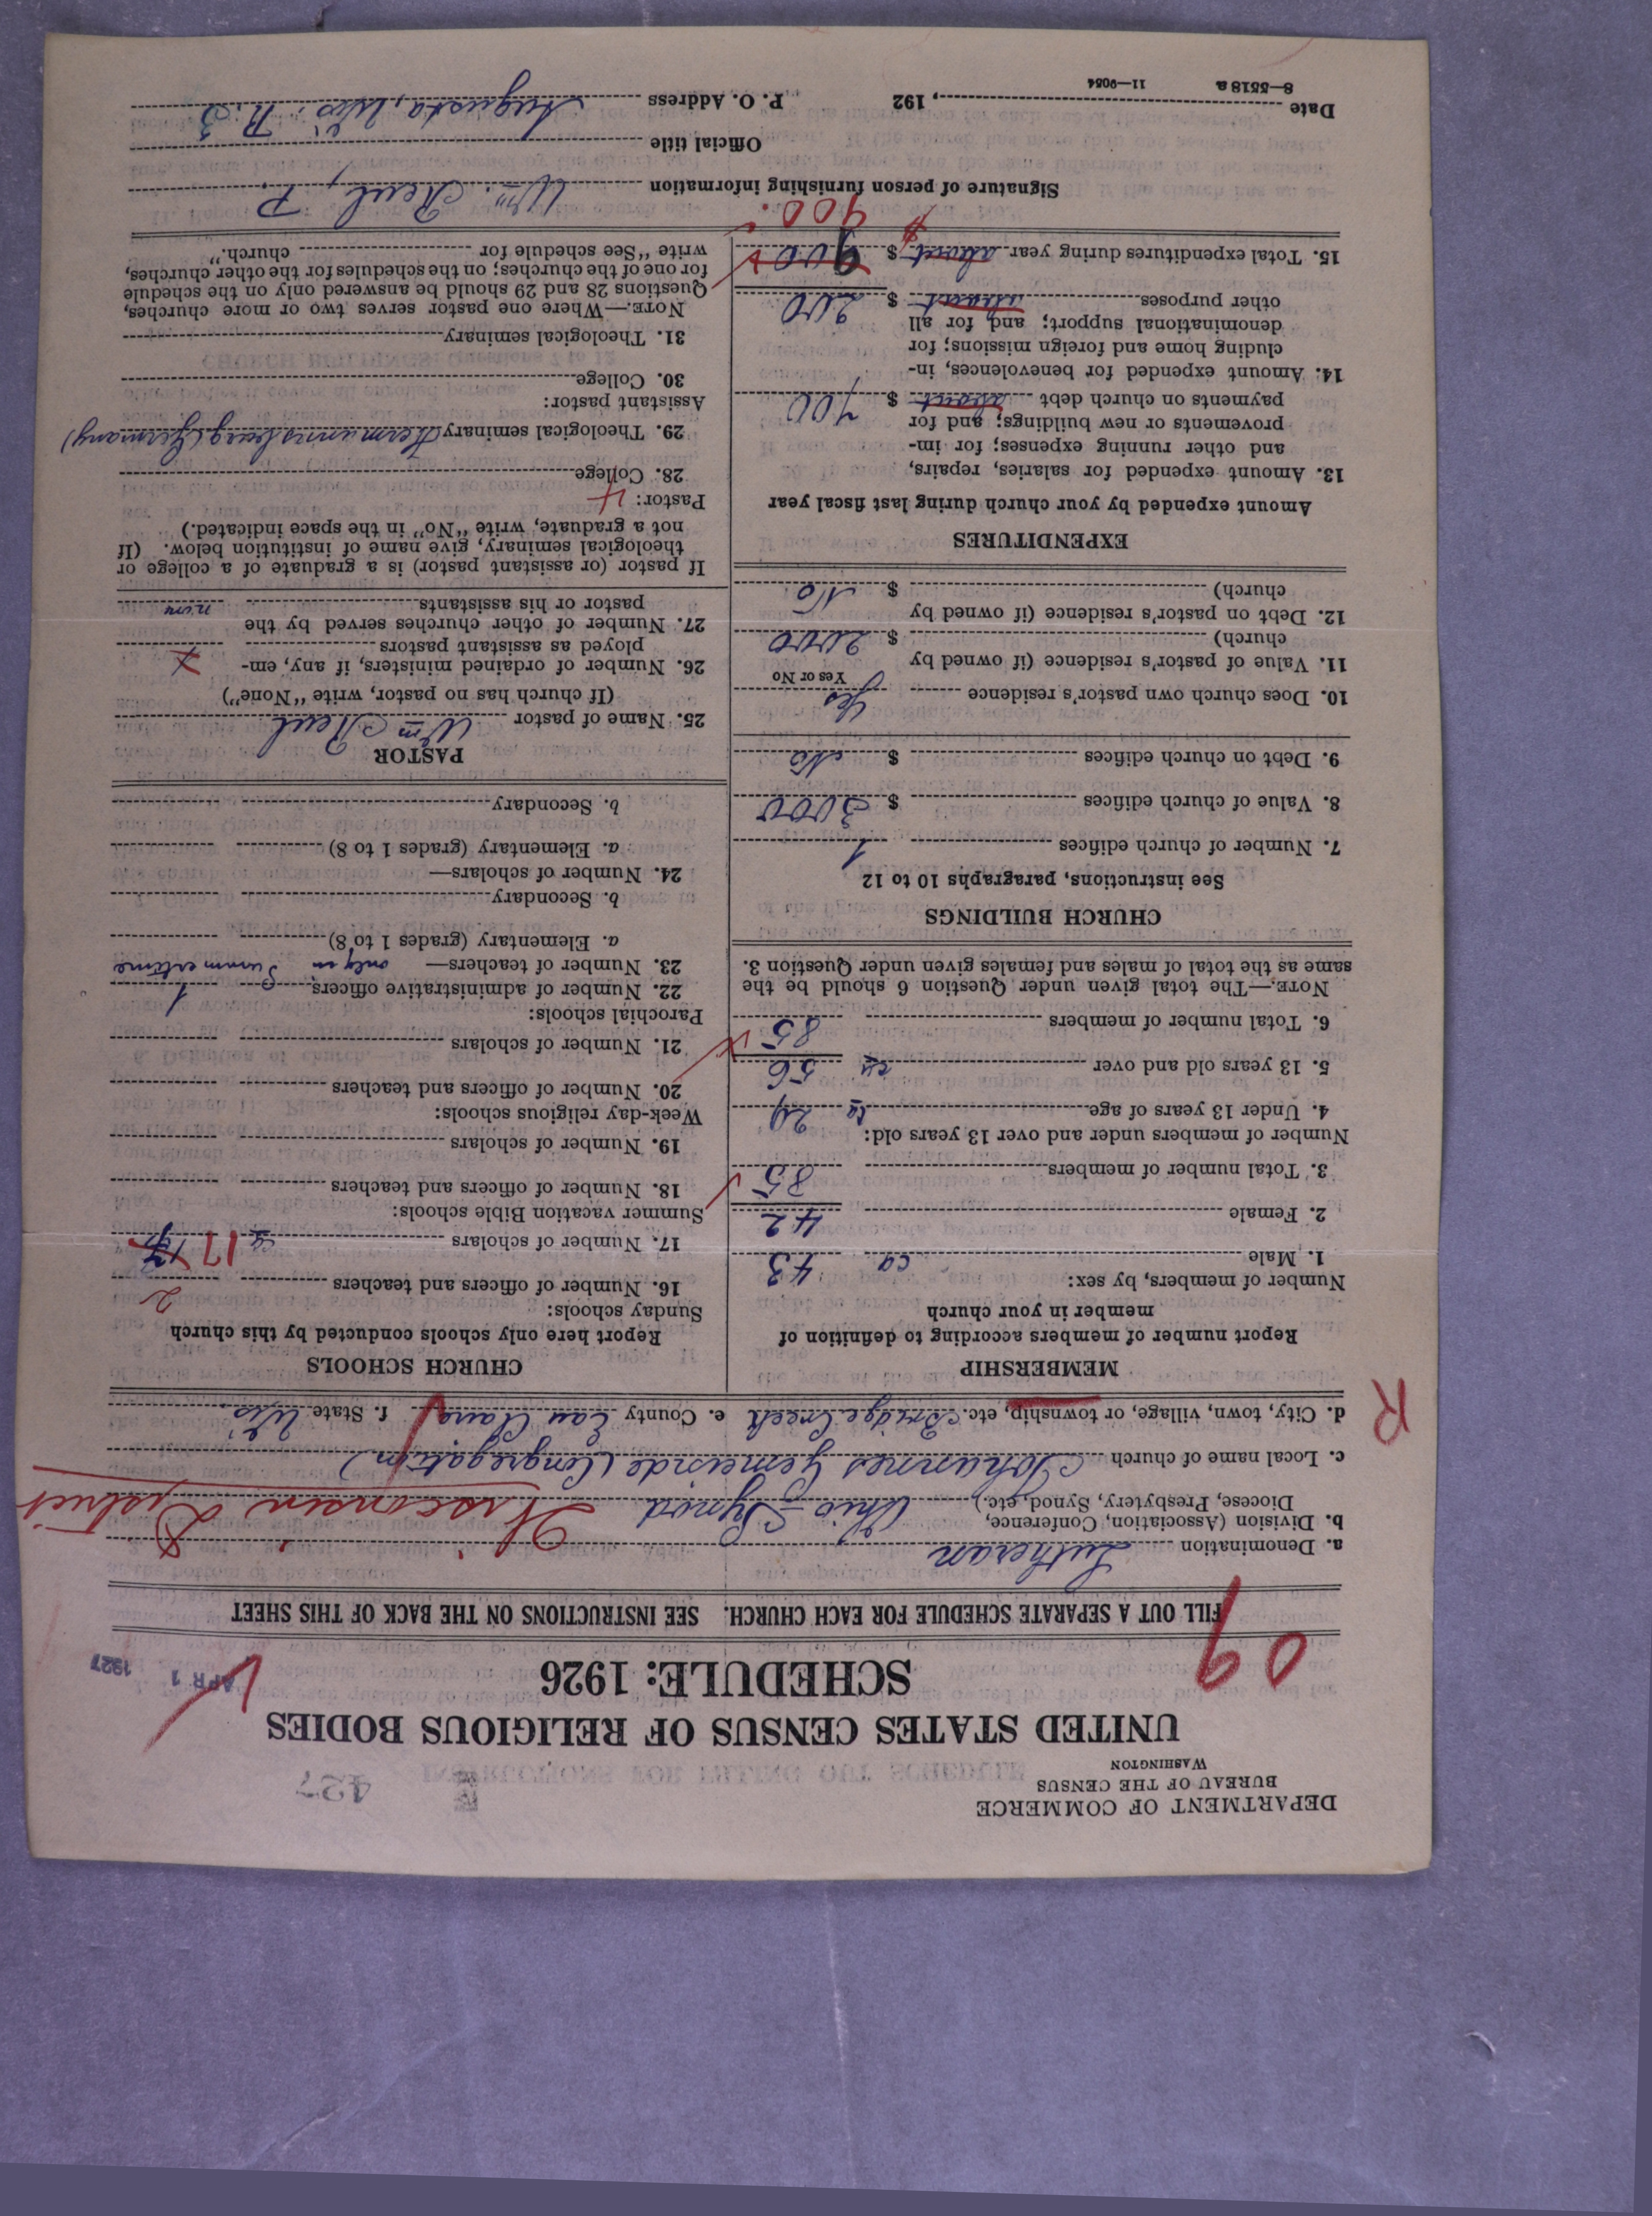 DEPARTMENT OF COMMERCE
BUREAU OF THE CENSUS
WASHINGTON
427
UNITED STATES CENSUS OF RELIGIOUS BODIES
SCHEDULE: 1926
APR 1 1927
09
FILL OUT A SEPARATE SCHEDULE FOR EACH CHURCH. SEE INSTRUCTIONS ON THE BACK OF THIS SHEET
a. Denomination Lutheran
b. Division (Association, Conference,
Diocese, Presbytery, Synod, etc.) Ohio-Synod Wisconsin District
c. Local name of church Johannes Gemeinde (Congregation)
d. City, town, village, or township, etc. Bridge Creek e. County Eau Claire f. State Wis.
R
MEMBERSHIP
Report number of members according to definition of
member in your church
Number of members, by sex:
1. Male ca 43
2. Female 42
3. Total number of members 85
Number of members under and over 13 years old:
4. Under 13 years of age ca 29
5. 13 years old and over ca 56
6. Total number of members 85
NOTE.—The total given under Question 6 should be the
same as the total of males and females given under Question 3.
CHURCH BUILDINGS
See instructions, paragraphs 10 to 12
7. Number of church edifices 1
8. Value of church edifices $ 3000
9. Debt on church edifices $ No
10. Does church own pastor's residence Yes
Yes or No
11. Value of pastor's residence (if owned by
church) $ 2000
12. Debt on pastor's residence (if owned by
church) $ No
EXPENDITURES
Amount expended by your church during last fiscal year
13. Amount expended for salaries, repairs,
and other running expenses; for im-
provements or new buildings; and for
payments on church debt about $ 700
14. Amount expended for benevolences, in-
cluding home and foreign missions; for
denominational support; and for all
other purposes about $ 200
15. Total expenditures during year about $ 900
$ 900
CHURCH SCHOOLS
Report here only schools conducted by this church
Sunday schools:
16. Number of officers and teachers 2
17. Number of scholars ca 17
Summer vacation Bible schools:
18. Number of officers and teachers
19. Number of scholars
Week-day religious schools:
20. Number of officers and teachers
21. Number of scholars
Parochial schools:
22. Number of administrative officers 1
23. Number of teachers— only in Summertime
a. Elementary (grades 1 to 8)
b. Secondary
24. Number of scholars—
a. Elementary (grades 1 to 8)
b. Secondary
PASTOR
25. Name of pastor Wm Reul
(If church has no pastor, write "None")
26. Number of ordained ministers, if any, em-
ployed as assistant pastors
27. Number of other churches served by the
pastor or his assistants
If pastor (or assistant pastor) is a graduate of a college or
theological seminary, give name of institution below. (If
not a graduate, write "No" in the space indicated.)
Pastor: 4
28. College
29. Theological seminary Hermannsburg (Germany)
Assistant pastor:
30. College
31. Theological seminary
NOTE.—Where one pastor serves two or more churches,
Questions 28 and 29 should be answered only on the schedule
for one of the churches; on the schedules for the other churches,
write "See schedule for church."
Signature of person furnishing information Wm. Reul, P.
Official title
Date , 192 P. O. Address Augusta, Wis. R. 3
8—5518 a 11—9054